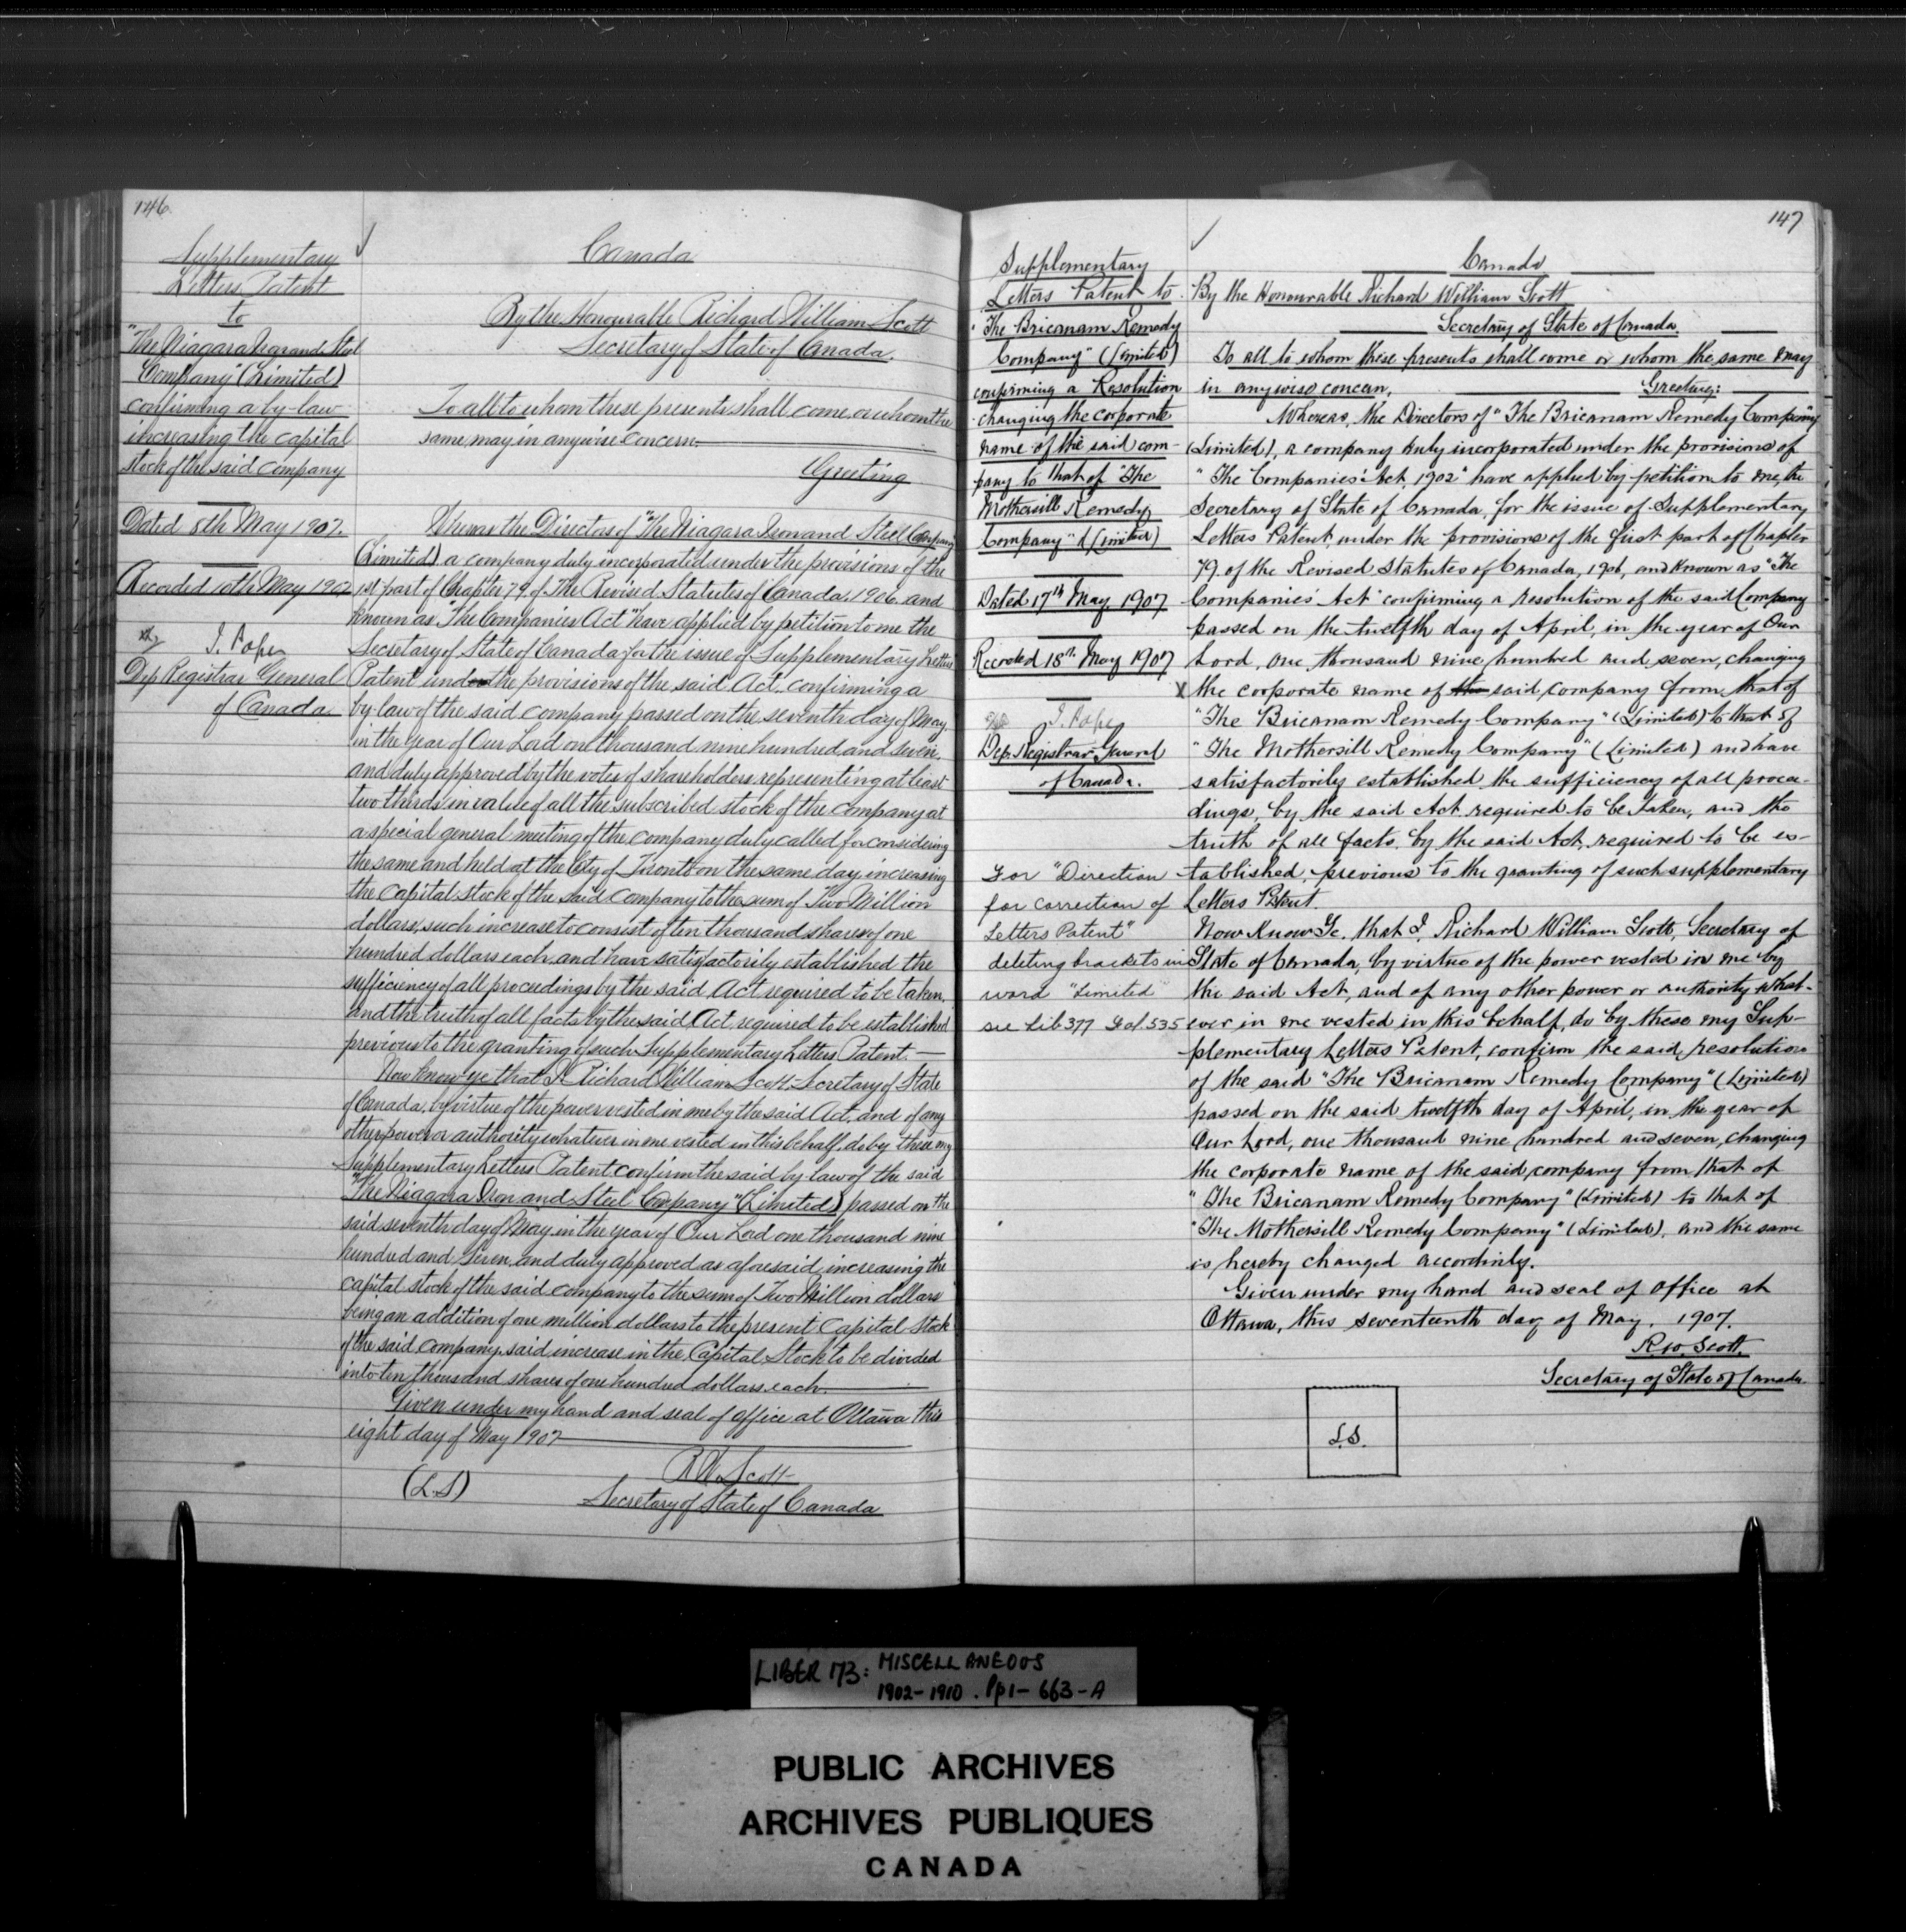 146
Supplementary
Letters Patent
to
"The Niagara Iron and Steel
Company" (Limited)
confirming a by-law
increasing the capital
stock of the said company
Dated 8th May 1907.
Recorded 10th May 1907
J. Pope
Dep Registrar General
of Canada
Canada
By the Honourable Richard William Scott
Secretary of State of Canada.
To all to whom these presents shall come or whom the
same may in anywise concern.
Greeting
Whereas the Directors of "The Niagara Iron and Steel Company
(Limited) a company duly incorporated under the provisions of the
1st part of Chapter 79 of The Revised Statutes of Canada, 1906, and
known as "The Companies Act" have applied by petition to me the
Secretary of State of Canada for the issue of Supplementary Letters
Patent under the provisions of the said Act, confirming a
by-law of the said company passed on the seventh day of May,
in the year of Our Lord one thousand nine hundred and seven,
and duly approved by the votes of shareholders representing at least
two thirds in value of all the subscribed stock of the company at
a special general meeting of the company duly called for considering
the same and held at the City of Toronto on the same day, increasing
the capital stock of the said company to the sum of Two Million
dollars, such increase to consist of ten thousand shares of one
hundred dollars each, and have satisfactorily established the
sufficiency of all proceedings by the said Act required to be taken,
and the truth of all facts by the said Act required to be established
previous to the granting of such Supplementary Letters Patent.
Now know ye that I Richard William Scott Secretary of State
of Canada, by virtue of the power vested in me by the said Act, and of any
other power or authority whatever in me vested in this behalf, do by these my
Supplementary Letters Patent confirm the said by law of the said
"The Niagara Iron and Steel Company" (Limited) passed on the
said seventh day of May in the year of Our Lord one thousand nine
hundred and seven, and duly approved as aforesaid, increasing the
capital stock of the said company to the sum of Two Million dollars
being an addition of one million dollars to the present Capital Stock
of the said company, said increase in the Capital Stock to be divided
into ten thousand shares of one hundred dollars each.
Given under my hand and seal of office at Ottawa this
eight day of May 1907
R W. Scott
(L.S) Secretary of State of Canada
147
Supplementary
Letters Patent to
"The Bricanam Remedy
Company" (Limited)
confirming a Resolution
changing the corporate
name of the said com-
pany to that of "The
Mothersill Remedy
Company" (Limited)
Dated 17th May 1907
Recorded 18th May 1907
J. Pope
Dep. Registrar General
of Canada.
For "Direction
for correction of
Letters Patent"
deleting brackets in
word "Limited"
see Lib 377 Fol. 535
Canada
By the Honourable Richard William Scott
Secretary of State of Canada.
To all to whom these presents shall come or whom the same may
in anywise concern, Greeting:
Whereas, the Directors of "The Bricanam Remedy Company"
(Limited), a company duly incorporated under the provisions of
"The Companies' Act, 1902" have applied by petition to me, the
Secretary of State of Canada, for the issue of Supplementary
Letters Patent, under the provisions of the first part of Chapter
79 of the Revised Statutes of Canada, 1906, and known as "The
Companies' Act" confirming a resolution of the said Company
passed on the twelfth day of April, in the year of Our
Lord, one thousand nine hundred and seven, changing
X the corporate name of the said company from that of
"The Bricanam Remedy Company" (Limited) to that of
"The Mothersill Remedy Company" (Limited) and have
satisfactorily established the sufficiency of all procee-
dings, by the said Act required to be taken, and the
truth of all facts, by the said Act, required to be es-
tablished, previous to the granting of such supplementary
Letters Patent.
Now Know Ye, that I, Richard William Scott, Secretary of
State of Canada, by virtue of the power vested in me by
the said Act, and of any other power or authority what-
ever in me vested in this behalf, do by these my Sup-
plementary Letters Patent, confirm the said resolution
of the said "The Bricanam Remedy Company" (Limited)
passed on the said twelfth day of April, in the year of
Our Lord, one thousand nine hundred and seven, changing
the corporate name of the said company from that of
"The Bricanam Remedy Company" (Limited) to that of
"The Mothersill Remedy Company" (Limited), and the same
is hereby changed accordingly.
Given under my hand and seal of office at
Ottawa, this seventeenth day of May, 1907.
R. W. Scott.
Secretary of State of Canada.
L.S.
LIBER 173: MISCELLANEOUS
1902-1910. Pp 1-663-A
PUBLIC ARCHIVES
ARCHIVES PUBLIQUES
CANADA